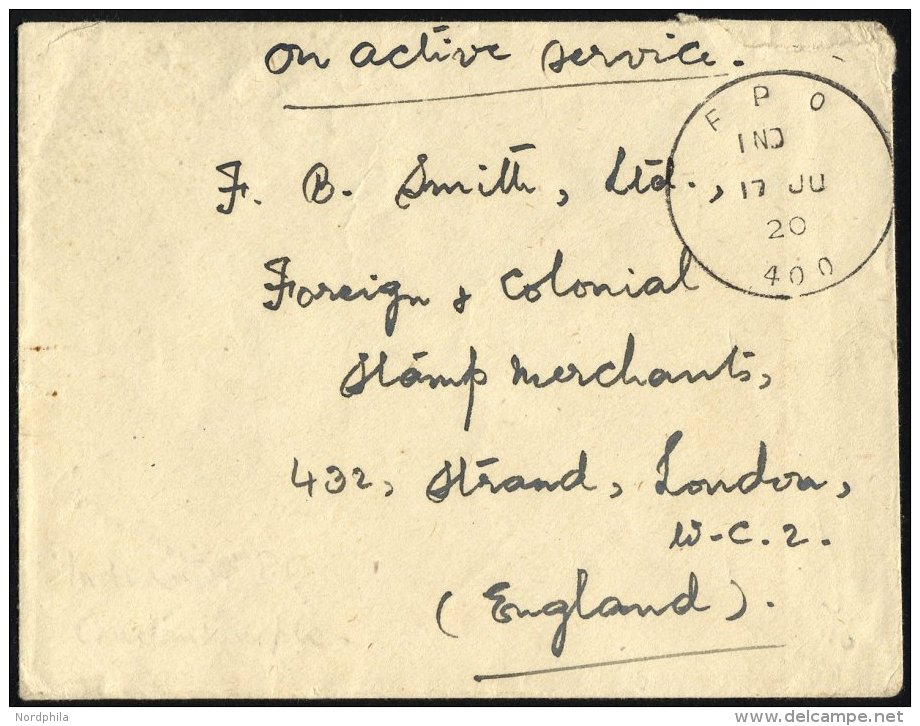 on active service.
F P O
IND
17 JU
20
400
F. B. Smith, Ltd.,
Foreign & Colonial
Stamp Merchants,
432, Strand, London,
W.C.2.
(England).
Nordphila
delcampe.net